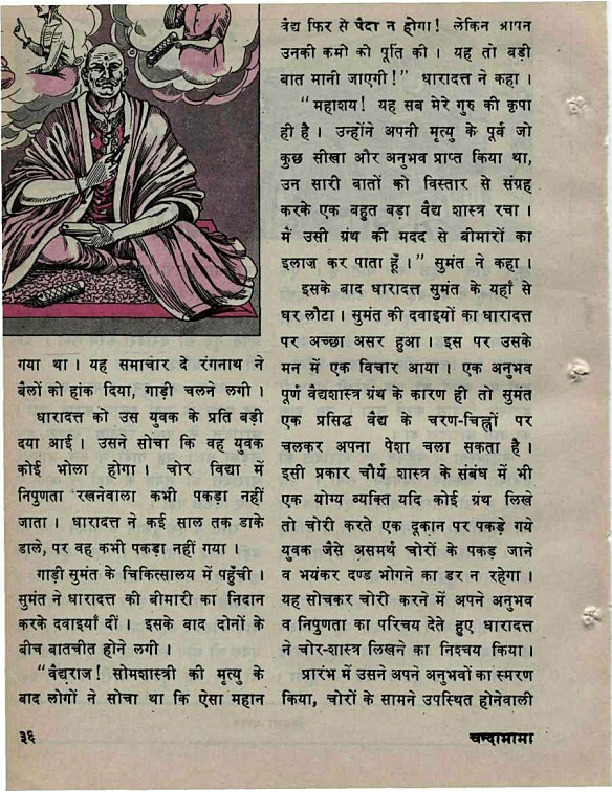 गया था । यह समाचार दे रंगनाथ ने
बैलों को हांक दिया, गाड़ी चलने लगी ।
धारादत्त को उस युवक के प्रति बड़ी
दया आई । उसने सोचा कि वह युवक
कोई भोला होगा । चोर विद्या में
निपुणता रखनेवाला कभी पकड़ा नहीं
जाता । धारादत्त ने कई साल तक डाके
डाले, पर वह कभी पकड़ा नहीं गया ।
गाड़ी सुमंत के चिकित्सालय में पहुँची ।
सुमंत ने धारादत्त की बीमारी का निदान
करके दवाइयाँ दीं । इसके बाद दोनों के
बीच बातचीत होने लगी ।
"वैद्यराज! सोमशास्त्री की मृत्यु के
बाद लोगों ने सोचा था कि ऐसा महान
वैद्य फिर से पैदा न होगा! लेकिन आपने
उनकी कमी की पूर्ति की । यह तो बड़ी
बात मानी जाएगी!" धारादत्त ने कहा ।
"महाशय! यह सब मेरे गुरु की कृपा
ही है । उन्होंने अपनी मृत्यु के पूर्व जो
कुछ सीखा और अनुभव प्राप्त किया था,
उन सारी बातों को विस्तार से संग्रह
करके एक बहुत बड़ा वैद्य शास्त्र रचा ।
में उसी ग्रंथ की मदद से बीमारों का
इलाज कर पाता हूँ ।" सुमंत ने कहा ।
इसके बाद धारादत्त सुमंत के यहाँ से
घर लौटा । सुमंत की दवाइयों का धारादत्त
पर अच्छा असर हुआ । इस पर उसके
मन में एक विचार आया । एक अनुभव
पूर्ण वैद्यशास्त्र ग्रंथ के कारण ही तो सुमंत
एक प्रसिद्ध वैद्य के चरण-चिह्नों पर
चलकर अपना पेशा चला सकता है ।
इसी प्रकार चौर्य शास्त्र के संबंध में भी
एक योग्य व्यक्ति यदि कोई ग्रंथ लिखे
तो चोरी करते एक दूकान पर पकड़े गये
युवक जैसे असमर्थ चोरों के पकड़ जाने
व भयंकर दण्ड भोगने का डर न रहेगा ।
यह सोचकर चोरी करने में अपने अनुभव
व निपुणता का परिचय देते हुए धारादत्त
ने चोर-शास्त्र लिखने का निश्चय किया ।
प्रारंभ में उसने अपने अनुभवों का स्मरण
किया, चोरों के सामने उपस्थित होनेवाली
३६
चन्दामामा